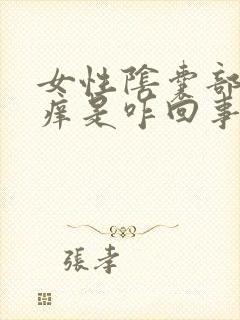 女性陰囊部
痒是咋回事
張孝